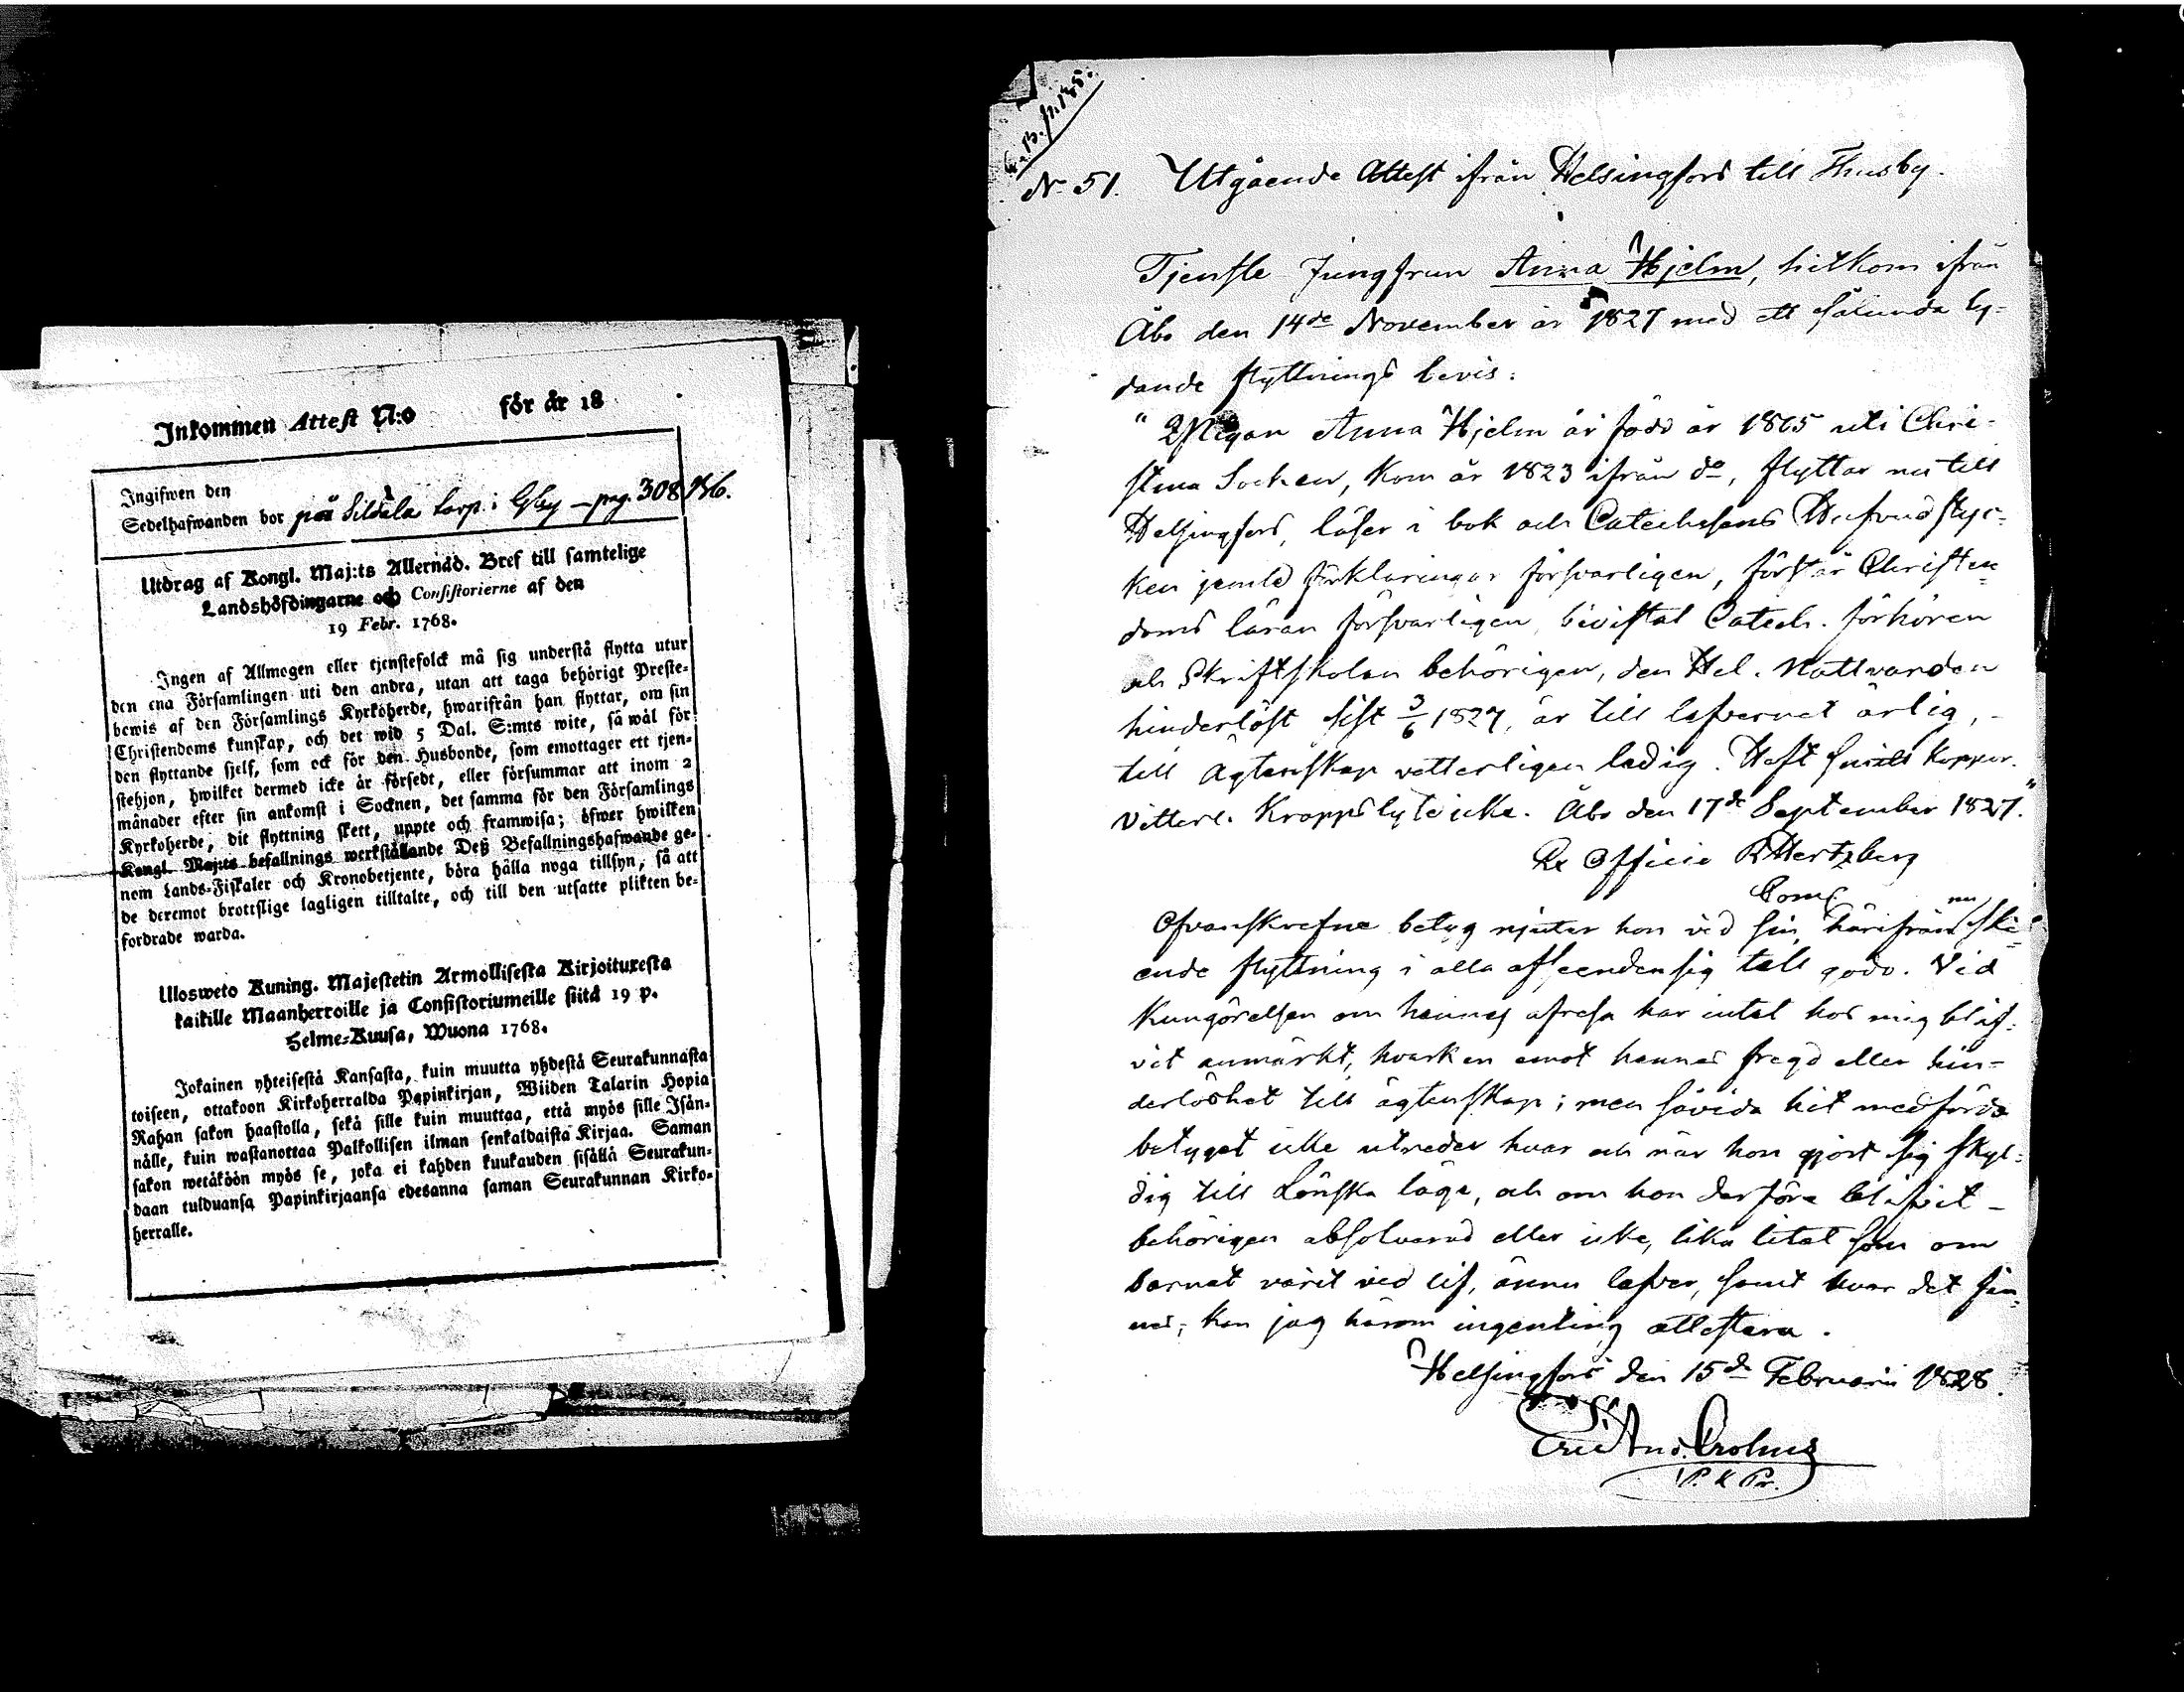 Inkommen Attest N:o för år 18
Ingifwen den
Sedelhafwanden bor på Sildala torp i Gsby – pag. 308
Utdrag af Kongl. Maj:ts Allernåd. Bref till samtelige
Landshöfdingarne och Consistorierne af den
19 Febr. 1768.
Ingen af Allmogen eller tjenstefolck må sig understå flytta utur
den ena Församlingen uti den andra, utan att taga behörigt Preste-
bewis af den Församlings Kyrkoherde, hwarifrån han flyttar, om sin
Christendoms kunskap, och det wid 5 Dal. S:mts wite, så wäl för
den flyttande sjelf, som ock för den Husbonde, som emottager ett tjen-
stehjon, hwilket dermed icke är försedt, eller försummar att inom 2
månader efter sin ankomst i Socknen, det samma för den Församlings
Kyrkoherde, dit flyttning skett, uppte och framwisa; öfwer hwilken
Kongl. Maj:ts befallnings werkställande Deß Befallningshafwande ge-
nom Lands-Fiskaler och Kronobetjente, böra hålla noga tillsyn, så att
de deremot brottslige lagligen tilltalte, och till den utsatte plikten be-
fordrade warda.
Ulosweto Kuning. Majestetin Armollisesta Kirjoituxesta
kaikille Maanherroille ja Consistoriumeille siitä 19 p.
Helme-Kuusa, Wuona 1768.
Jokainen yhteisestä Kansasta, kuin muutta yhdestä Seurakunnasta
toiseen, ottakoon Kirkoherralda Papinkirjan, Wiiden Talarin Hopia
Rahan sakon haastolla, sekä sille kuin muuttaa, että myös sille Isän-
nälle, kuin wastanottaa Palkollisen ilman senkaldaista Kirjaa. Saman
sakon wetäköön myös se, joka ei kahden kuukauden sisällä Seurakun-
daan tulduansa Papinkirjaansa edesanna saman Seurakunnan Kirko-
herralle.
N 51. Utgående Attest ifrån Helsingfors till Thusby.
Tjenste Jungfrun Anna Hjelm, hitkom ifrån
Åbo den 14de November år 1827 med ett sålunda ly-
dande flyttnings bevis:
"Pigan Anna Hjelm är född år 1805 uti Chri-
stina Socken, kom år 1823 ifrån do, flyttar nu till
Helsingfors, läser i bok och Catechesens Hufvudstyc-
ken jemte förklaringar försvarligen, förstår Christen-
doms läran försvarligen, bivistat Catech. förhören
och Skriftskolan behörigen, den Hel. Nattvarden
hinderlöst sist 3/6 1827, är till lefvernet ärlig, -
till Ägtenskap vetterligen ledig. Haft koppor.
Vitterl. Kroppslyte icke. Åbo den 17de September 1827."
Ex Officio Hertzberg
Ofvanskrefne betyg njuter hon vid sin härifrån nu ske-
ende flyttning i alla afseenden sig till godo. Vid
Kungörelsen om hennes afresa har intet hos mig blif-
vit anmärkt, hvarken emot hennes frejd eller hin-
derlöshet till ägtenskap; men såvida hit medförda
betyget icke utreder hvar och när hon gjort sig skyl-
dig till Lönska läge, och om hon derföre blifvit -
behörigen absolverad eller icke, lika litet som om
barnet varit vid lif, ännu lefver, samt hvar det fin-
nes; kan jag härom ingenting attestera.
Helsingfors den 15de Februarii 1828.
Crolus